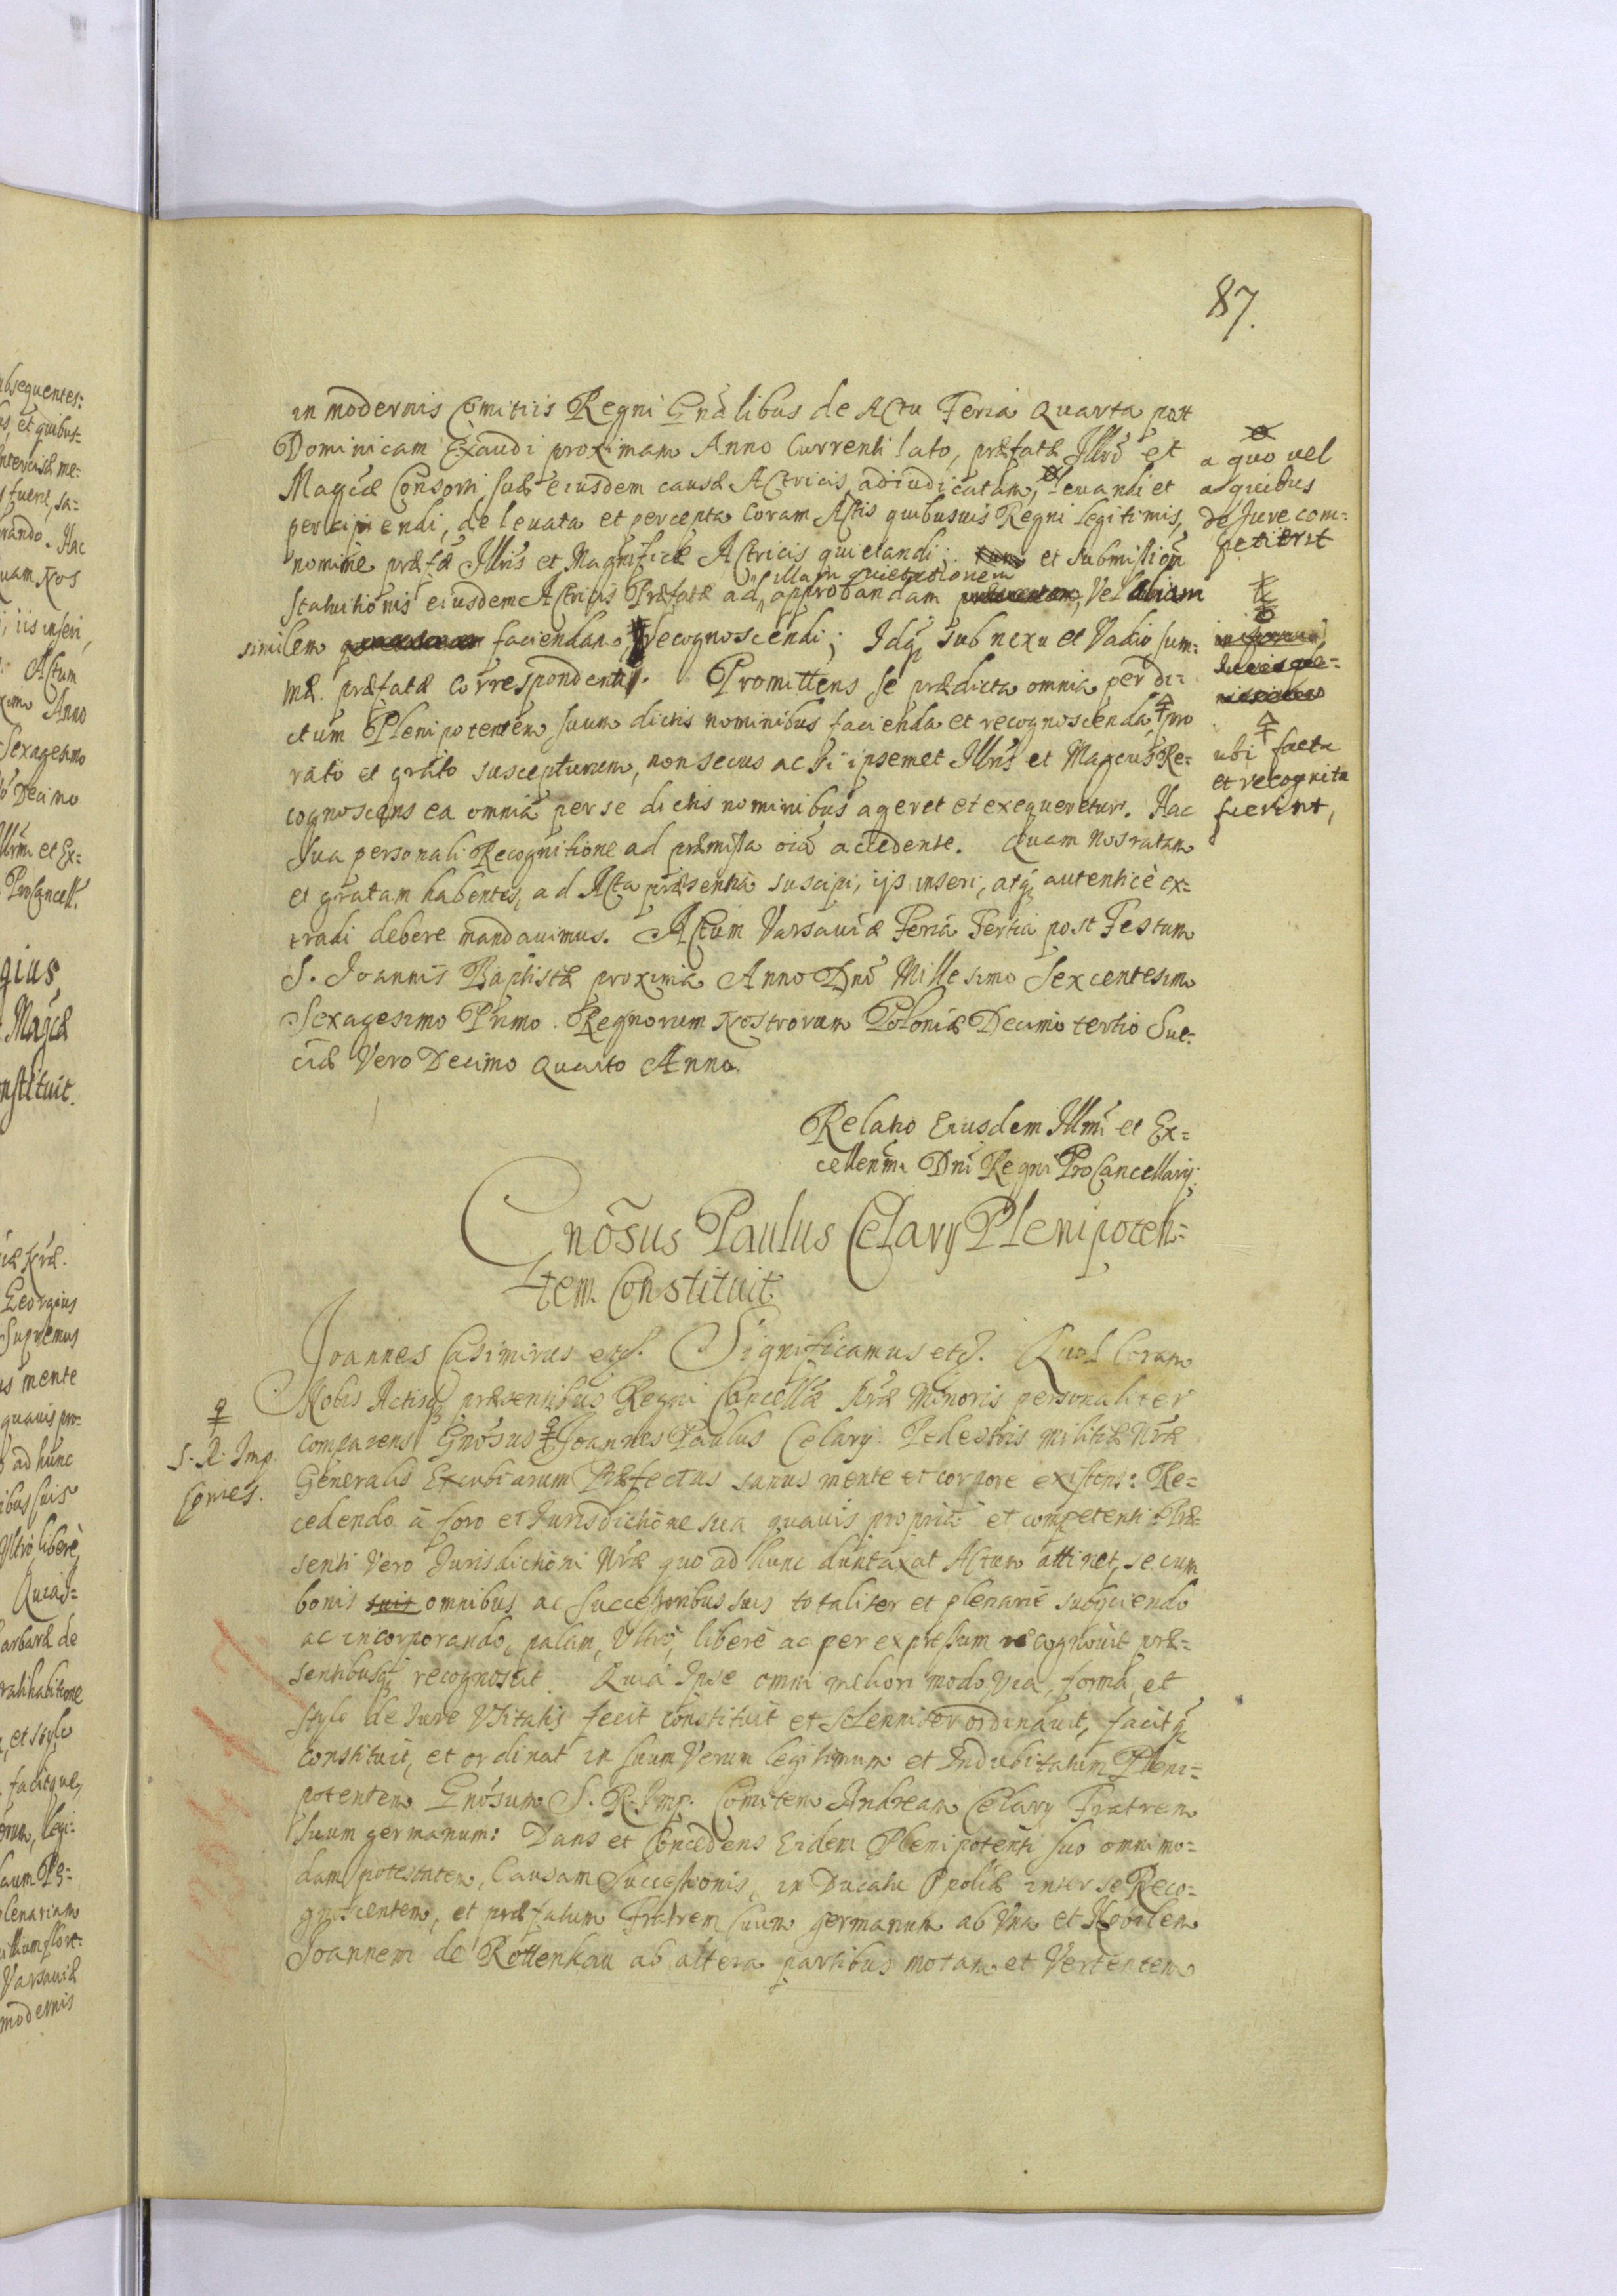 87.
in modernis Comitiis Regni Gnalibus de Actu Feria Quarta post
Dominicam Exaudi proximam Anno Currenti lato, præfatæ Illri et
Magcæ Consorti suæ eiusdem causæ Actricis adiudicatam, levandi et
percipiendi, de levata et percepta Coram Actis quibusuis Regni legitimis,
nomine præfæ Illris et Magnificæ Actricis quietandi; et submission
illam quietationem
Statuitionis eiusdem Actricis Præfatæ ad approbandam Vel aliam
similem faciendam, recognoscendi; Idq sub nexu et Vadio sum-
mæ præfatæ correspondenti. Promittens se prædicta omnia per di-
ctum Plenipotentem suum dictis nominibus facienda et recognoscenda, pro
rato et grato suscepturum, non secus ac si ipsemet Illris et Magcus Re-
cognoscens ea omnia per se dictis nominibus ageret et exequeretur. Hac
sua personali Recognitione ad præmissa oia accedente. Quam nos ratam
et gratam habentes, ad Acta præsentia suscipi, ijs inseri, atq autenticè ex-
tradi debere mandauimus. Actum Varsauiæ Feria Tertia post Festum
S. Joannis Baptistæ proxima Anno Dni Millesimo Sexcentesimo
Sexagesimo Primo. Regnorum Nostrorum Poloniæ Decimo tertio Sue-
ciæ Vero Decimo Quarto Anno.
a quo vel
a quibus
de Jure com-
petierit
ubi facta
et recognita
fuerint,
Relatio Eiusdem Illmi et Ex-
cellenmi Dni Regni ProCancellarij.
Gnosus Paulus Celary Plenipoten-
tem Constituit
Joannes Casimirus etc. Significamus etc. Quod Coram
Nobis Actisq præsentibus Regni Cancellæ Nræ Minoris personaliter
comparens Gnosus Joannes Paulus Celary Pedestris militiæ Nræ
S. R. Imp.
Comes.
Generalis Excubiarum Præfectus sanus mente et corpore existens: Re-
cedendo à foro et Jurisdictione sua quauis propria et competenti Præ-
senti vero Jurisdictioni Nræ quo ad hunc duntaxat Actum attinet, se cum
bonis suis omnibus ac successoribus suis totaliter et plenariè subijciendo
ac incorporando, palam, Vltrò, liberè ac per expressum recognouit præ-
sentibusq recognoscit. Quia Ipse omni meliori modo, via, forma, et
stylo de Jure Vsitatis fecit constituit et solenniter ordinauit, facitq
constituit, et ordinat in suum Verum legitimum et Indubitatum Pleni-
potentem Gnosum S. R. Imp. Comitem Andream Celary Fratrem
suum germanum: Dans et Concedens Eidem Plenipotenti suo omnimo-
dam potestatem, Causam Successionis, in Ducatu Opoliæ inter se Reco-
gnoscentem, et præfatum Fratrem suum germanum ab Vna et Nobilem
Joannem de Rottenhau ab altera partibus motam et Vertentem